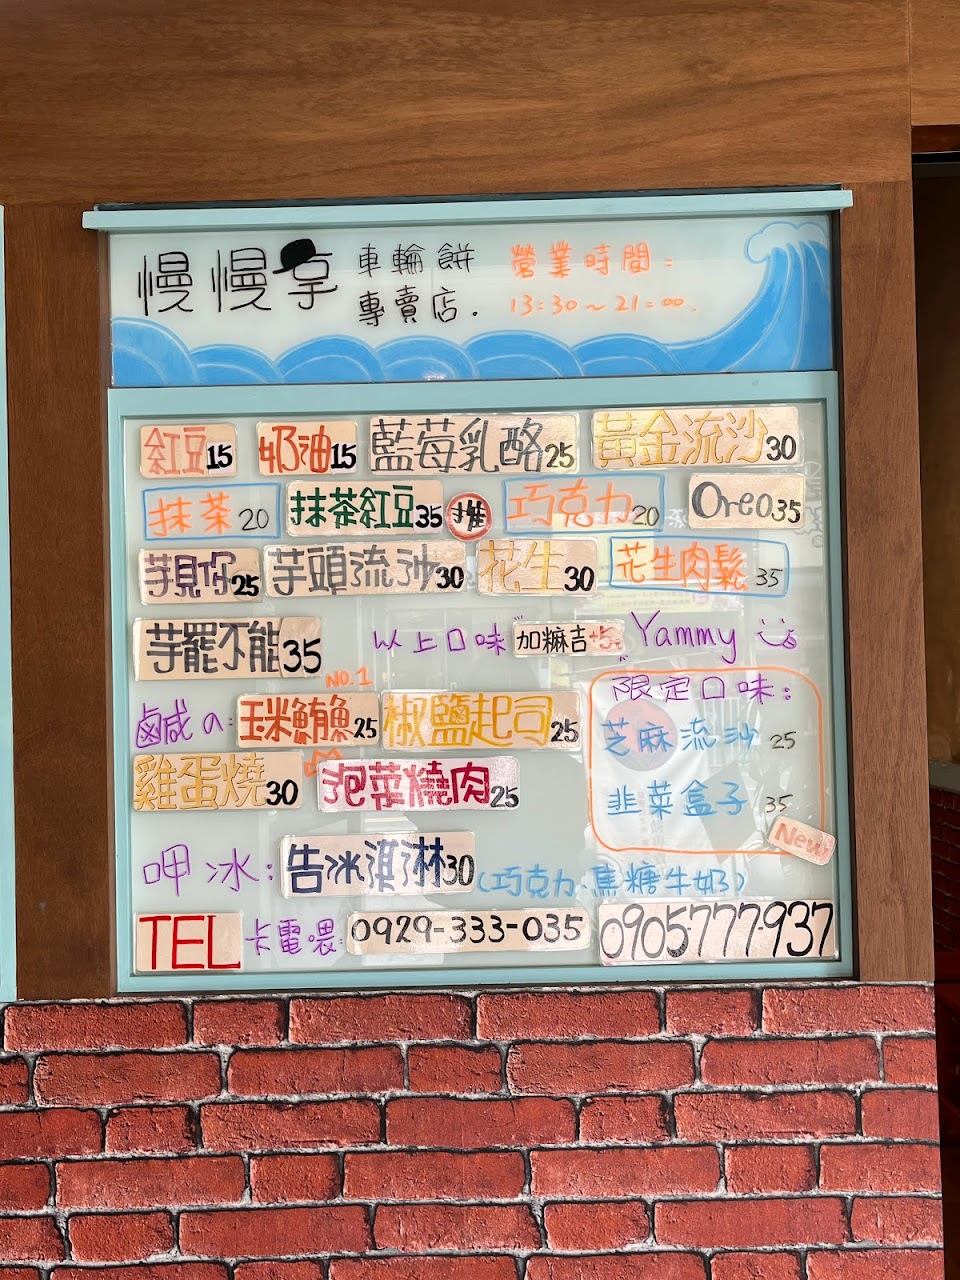 慢慢享 車輪餅 營業時間:
專賣店. 13:30～21:00.
紅豆15 奶油15 藍莓乳酪25 黃金流沙30
抹茶20 抹茶紅豆35 推 巧克力20 Oreo35
芋見你25 芋頭流沙30 花生30 花生肉鬆35
芋罷不能35 以上口味 加麻吉+5元 Yammy
NO.1 限定口味:
鹹の: 玉米鮪魚25 椒鹽起司25 芝麻流沙 25
雞蛋燒30 泡菜燒肉25 韭菜盒子 35
New
呷冰: 告冰淇淋30 (巧克力.焦糖牛奶)
TEL 卡電喂: 0929-333-035 0905-777-937